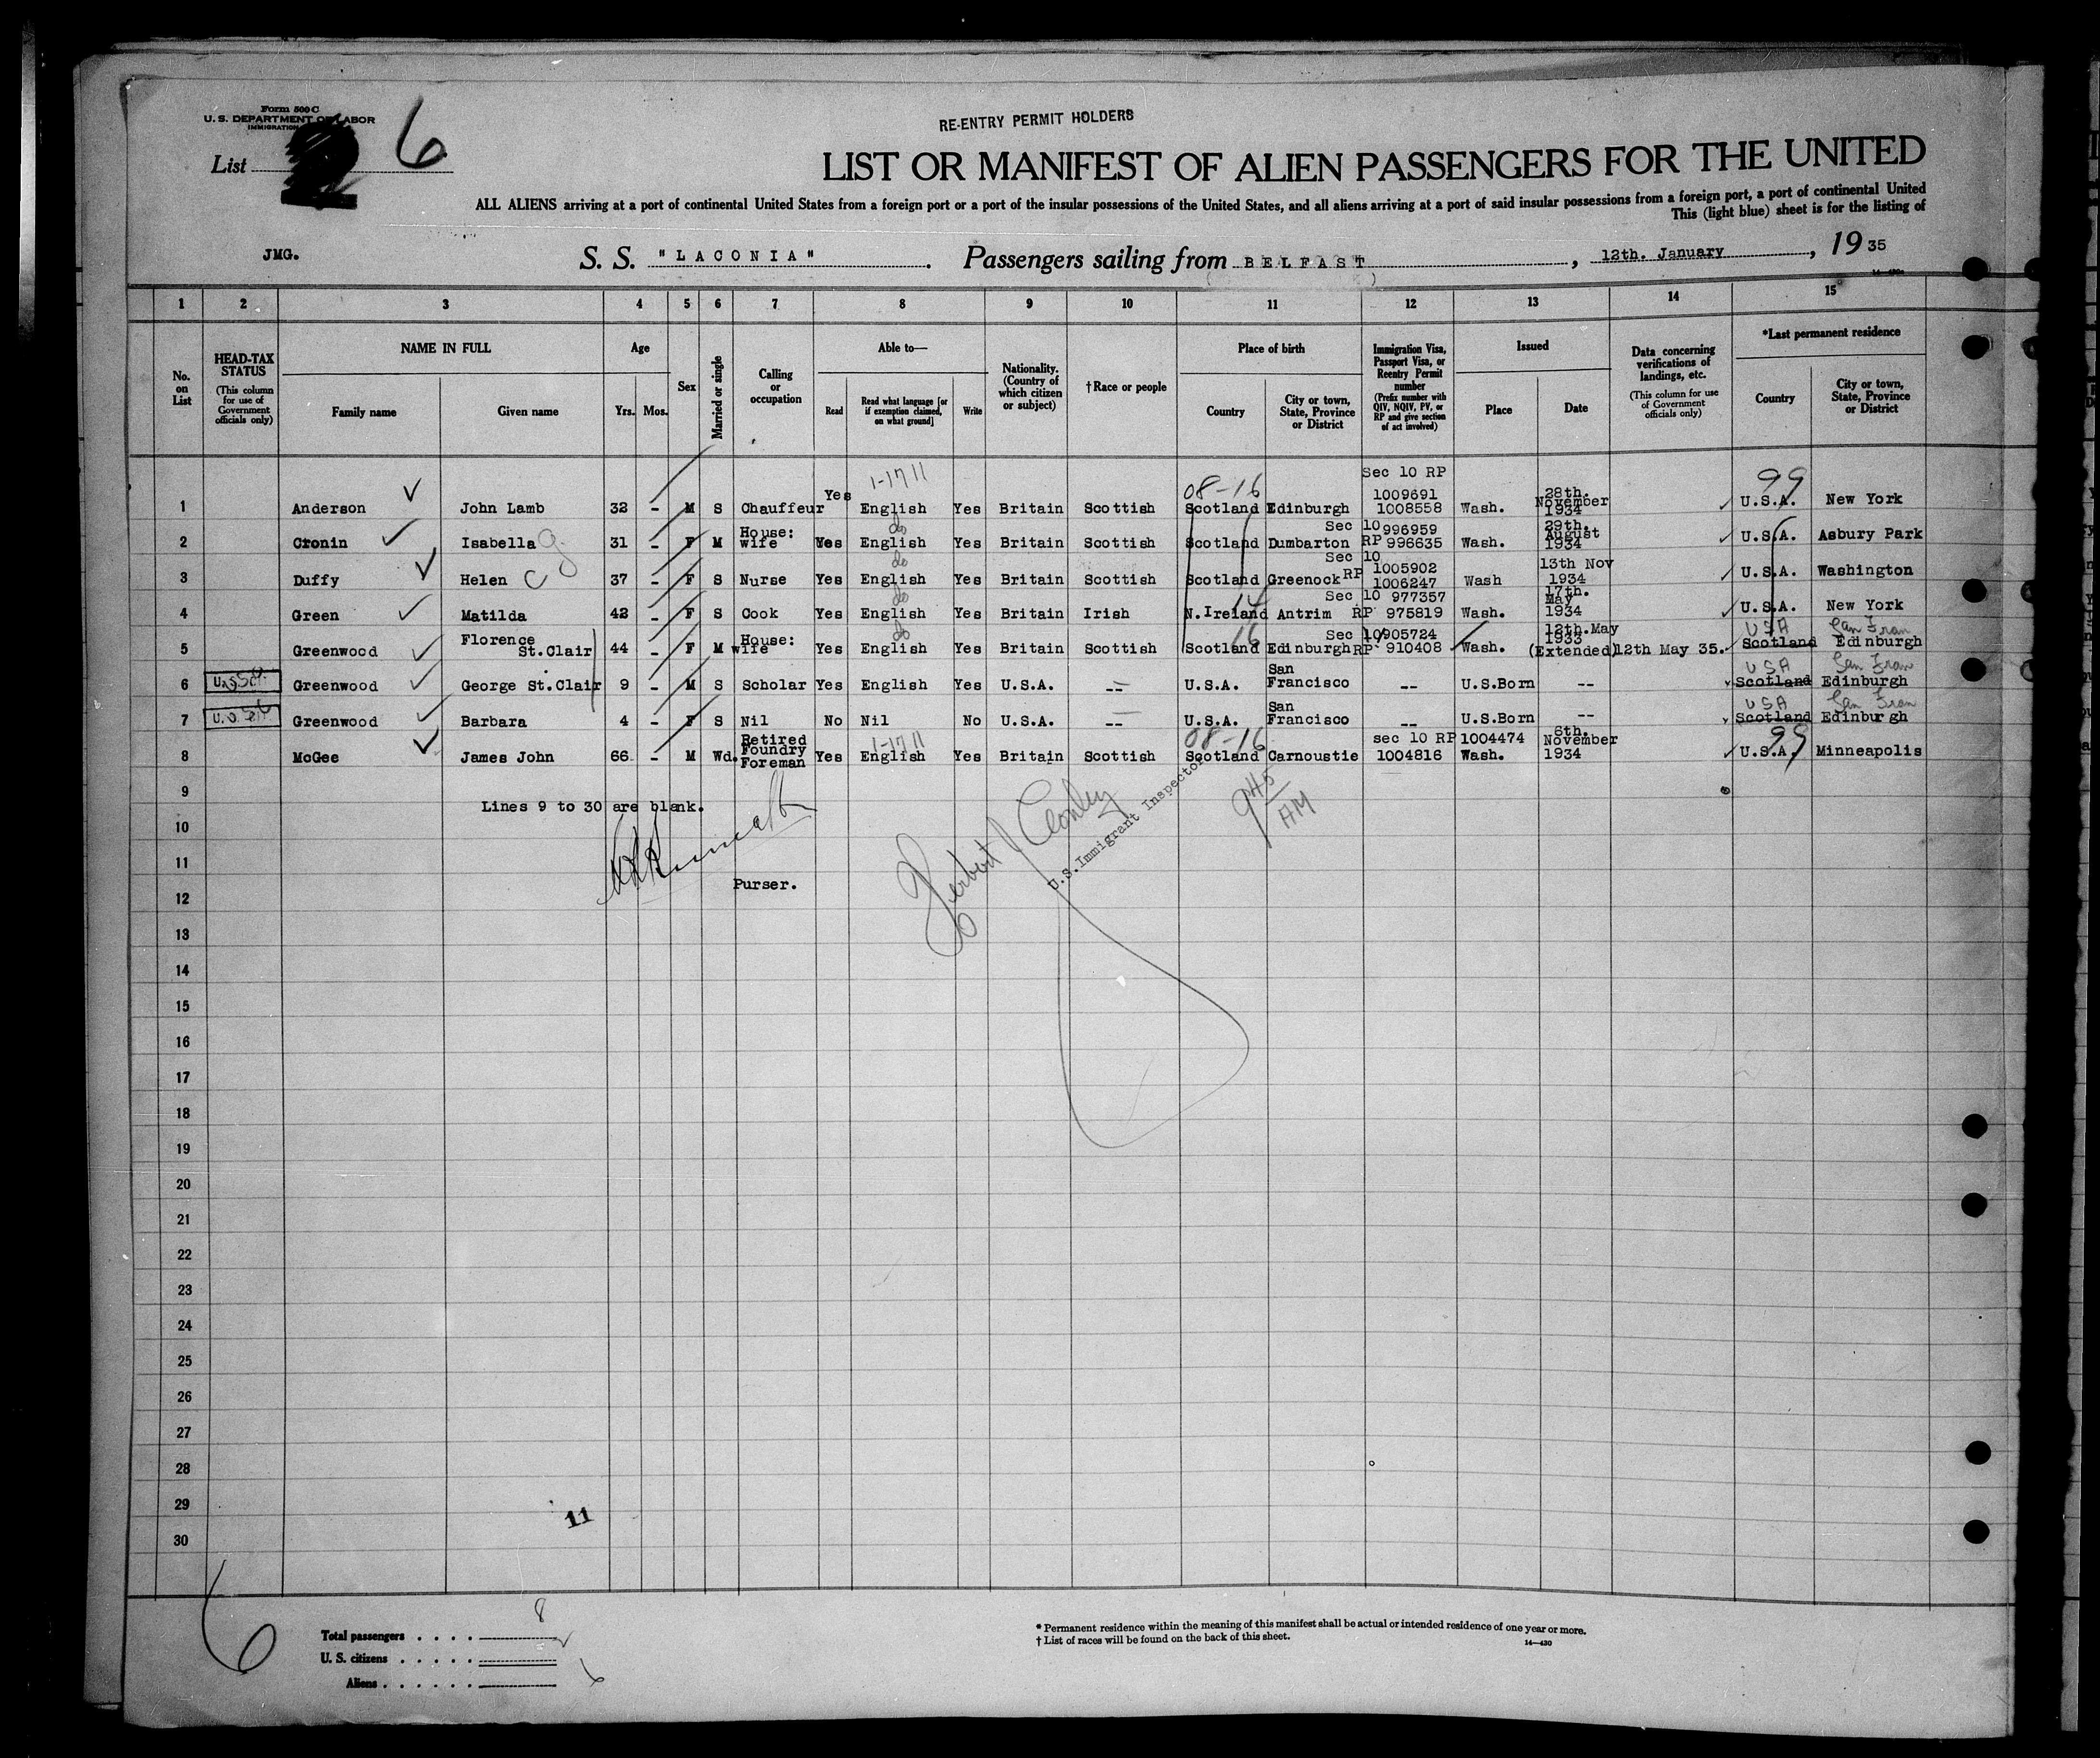 Form 500 C
U. S. DEPARTMENT OF LABOR
IMMIGRATION
List 6
RE-ENTRY PERMIT HOLDERS
LIST OR MANIFEST OF ALIEN PASSENGERS FOR THE UNITED
ALL ALIENS arriving at a port of continental United States from a foreign port or a port of the insular possessions of the United States, and all aliens arriving at a port of said insular possessions from a foreign port, a port of continental United
This (light blue) sheet is for the listing of
JMG. S. S. "LACONIA". Passengers sailing from BELFAST, 12th. January, 1935
1 2 3 4 5 6 7 8 9 10 11 12 13 14 15
No. on List
HEAD-TAX STATUS (This column for use of Government officials only)
NAME IN FULL Family name Given name
Age Yrs. Mos.
Sex
Married or single
Calling or occupation
Able to— Read Read what language [or if exemption claimed, on what ground] Write
Nationality. (Country of which citizen or subject)
†Race or people
Place of birth Country City or town, State, Province or District
Immigration Visa, Passport Visa, or Reentry Permit number (Prefix number with QIV, NQIV, PV, or RP and give section of act involved)
Issued Place Date
Data concerning verifications of landings, etc. (This column for use of Government officials only)
*Last permanent residence Country City or town, State, Province or District
1-17 11 08-16 Sec 10 RP 99
1 Anderson John Lamb 32 - M S Chauffeur Yes English Yes Britain Scottish Scotland Edinburgh 1009691 1008558 Wash. 28th. November 1934 U.S.A. New York
2 Cronin Isabella G 31 - F M House: wife Yes do English Yes Britain Scottish Scotland Dumbarton Sec 10 RP 996959 996635 Wash. 29th. August 1934 U.S.A. Asbury Park
3 Duffy Helen C 37 - F S Nurse Yes do English Yes Britain Scottish Scotland Greenock Sec 10 RP 1005902 1006247 Wash 13th Nov 1934 U.S.A. Washington
4 Green Matilda 42 - F S Cook Yes do English Yes Britain Irish 14 N.Ireland Antrim Sec 10 RP 977357 975819 Wash. 17th. May 1934 U.S.A. New York
5 Greenwood Florence St.Clair 44 - F M House: wife Yes do English Yes Britain Scottish 16 Scotland Edinburgh Sec 10 RP 905724 910408 Wash. 12th.May 1933 (Extended) 12th May 35. USA San Fran Scotland Edinburgh
6 Greenwood George St.Clair 9 - M S Scholar Yes English Yes U.S.A. -- U.S.A. San Francisco -- U.S.Born -- USA San Fran Scotland Edinburgh
7 Greenwood Barbara 4 - F S Nil No Nil No U.S.A. -- U.S.A. San Francisco -- U.S.Born -- USA San Fran Scotland Edinburgh
8 McGee James John 66 - M Wd. Retired Foundry Foreman Yes 1-17 11 English Yes Britain Scottish 08-16 Scotland Carnoustie sec 10 RP 1004474 1004816 Wash. 6th. November 1934 99 U.S.A. Minneapolis
9
Lines 9 to 30 are blank.
10
9 45 AM
11
Herbert J Conley
U.S.Immigrant Inspector
Purser.
12
13
14
15
16
17
18
19
20
21
22
23
24
25
26
27
28
29
11
30
6
8
Total passengers
U. S. citizens
Aliens 6
* Permanent residence within the meaning of this manifest shall be actual or intended residence of one year or more.
† List of races will be found on the back of this sheet.
14—430